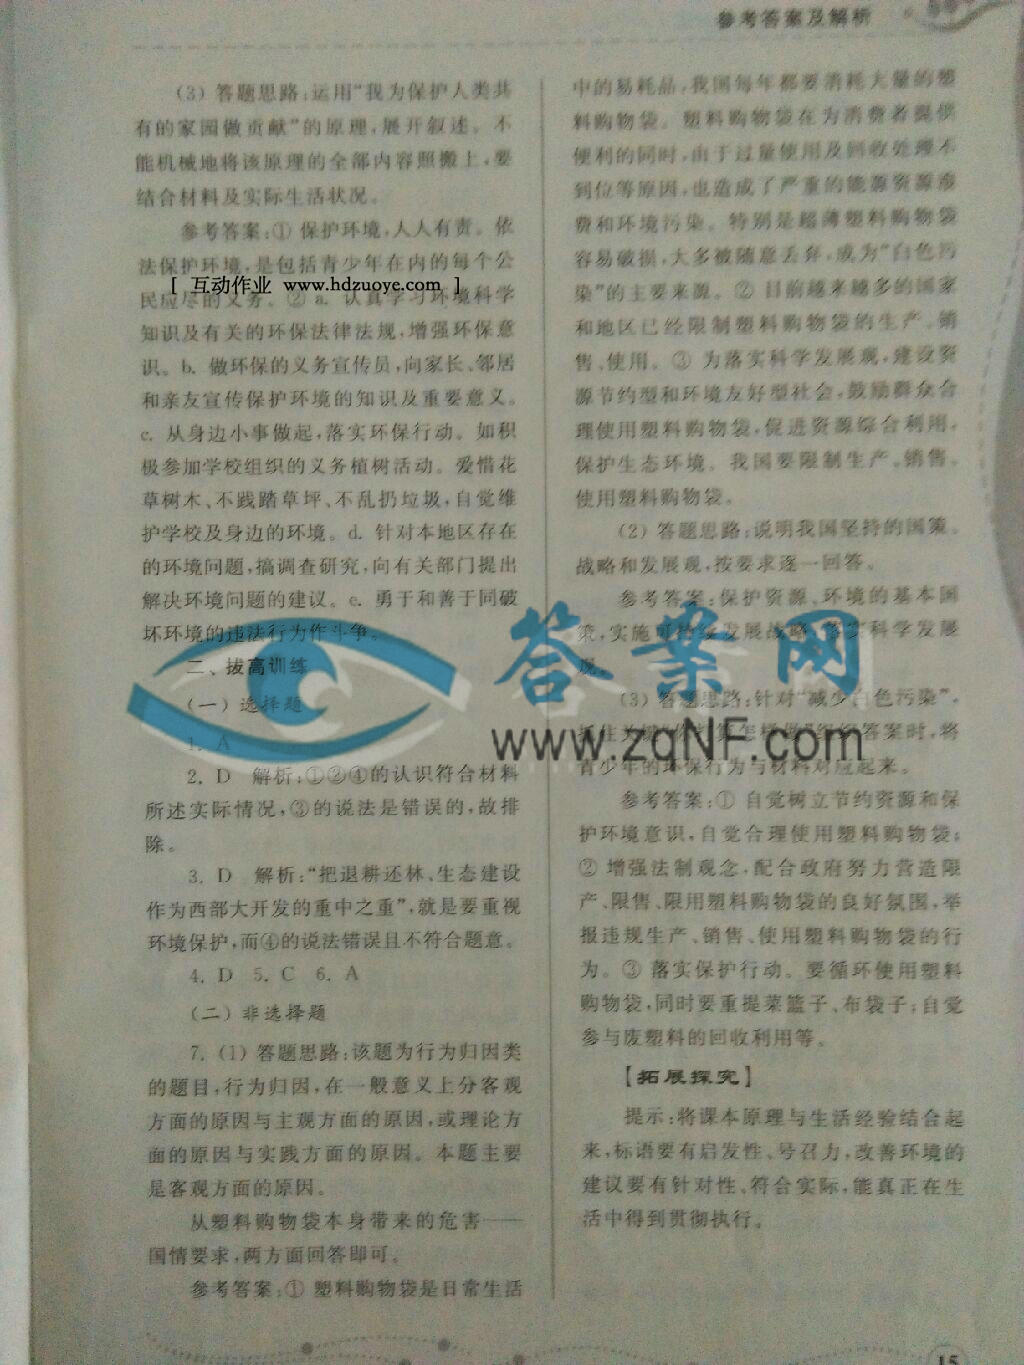 参考答案及解析
(3) 答题思路:运用“我为保护人类共
有的家园做贡献”的原理,展开叙述。不
能机械地将该原理的全部内容照搬上,要
结合材料及实际生活状况。
参考答案:① 保护环境,人人有责。依
法保护环境,是包括青少年在内的每个公
[ 互动作业 www.hdzuoye.com ]
民应尽的义务。② a. 认真学习环境科学
知识及有关的环保法律法规,增强环保意
识。b. 做环保的义务宣传员,向家长、邻居
和亲友宣传保护环境的知识及重要意义。
c. 从身边小事做起,落实环保行动。如积
极参加学校组织的义务植树活动。爱惜花
草树木、不践踏草坪、不乱扔垃圾,自觉维
护学校及身边的环境。d. 针对本地区存在
的环境问题,搞调查研究,向有关部门提出
解决环境问题的建议。e. 勇于和善于同破
坏环境的违法行为作斗争。
二、拔高训练
(一) 选择题
1. A
2. D 解析:①②④的认识符合材料
所述实际情况,③的说法是错误的,故排
除。
3. D 解析:“把退耕还林、生态建设
作为西部大开发的重中之重”,就是要重视
环境保护,而④的说法错误且不符合题意。
4. D 5. C 6. A
(二) 非选择题
7. (1) 答题思路:该题为行为归因类
的题目,行为归因,在一般意义上分客观
方面的原因与主观方面的原因,或理论方
面的原因与实践方面的原因。本题主要
是客观方面的原因。
从塑料购物袋本身带来的危害——
国情要求,两方面回答即可。
参考答案:① 塑料购物袋是日常生活
中的易耗品,我国每年都要消耗大量的塑
料购物袋。塑料购物袋在为消费者提供
便利的同时,由于过量使用及回收处理不
到位等原因,也造成了严重的能源资源浪
费和环境污染。特别是超薄塑料购物袋
容易破损,大多被随意丢弃,成为“白色污
染”的主要来源。② 目前越来越多的国家
和地区已经限制塑料购物袋的生产、销
售、使用。③ 为落实科学发展观,建设资
源节约型和环境友好型社会,鼓励群众合
理使用塑料购物袋,促进资源综合利用,
保护生态环境。我国要限制生产、销售、
使用塑料购物袋。
(2) 答题思路:说明我国坚持的国策、
战略和发展观,按要求逐一回答。
参考答案:保护资源、环境的基本国
策,实施可持续发展战略,落实科学发展
观。
(3) 答题思路:针对“减少白色污染”,
抓住关键“你打算怎样做”组织答案时,将
青少年的环保行为与材料对应起来。
参考答案:① 自觉树立节约资源和保
护环境意识,自觉合理使用塑料购物袋;
② 增强法制观念,配合政府努力营造限
产、限售、限用塑料购物袋的良好氛围,举
报违规生产、销售、使用塑料购物袋的行
为。③ 落实保护行动。要循环使用塑料
购物袋,同时要重提菜篮子、布袋子;自觉
参与废塑料的回收利用等。
【拓展探究】
提示:将课本原理与生活经验结合起
来,标语要有启发性、号召力,改善环境的
建议要有针对性、符合实际,能真正在生
活中得到贯彻执行。
答案网
www.zqNF.com
15